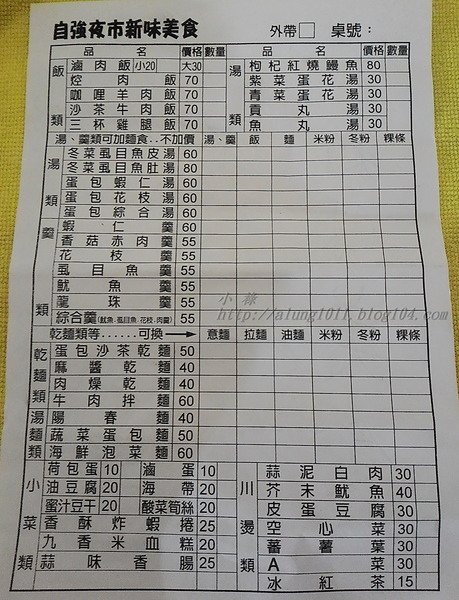 自強夜市新味美食 外帶 桌號：
品名 價格 數量 品名 價格 數量
飯類
滷肉飯 小20 大30
焢肉飯 70
咖哩羊肉飯 70
沙茶牛肉飯 70
三杯雞腿飯 70
湯類
枸杞紅燒鰻魚 80
紫菜蛋花湯 30
青菜蛋花湯 30
貢丸湯 30
魚丸湯 30
湯、羹類可加麵食..不加價 湯、羹 飯 麵 米粉 冬粉 粿條
湯類
冬菜虱目魚皮湯 60
冬菜虱目魚肚湯 80
蛋包蝦仁湯 60
蛋包花枝湯 60
蛋包綜合湯 60
羹類
蝦仁羹 60
香菇赤肉羹 55
花枝羹 55
虱目魚羹 55
魷魚羹 55
龍珠羹 55
綜合羹(魷魚.虱目魚.花枝.肉羹) 55
小祿
http://alung1011.blog104.com
乾麵類等......可換→ 意麵 拉麵 油麵 米粉 冬粉 粿條
乾麵類
蛋包沙茶乾麵 50
麻醬乾麵 40
肉燥乾麵 40
牛肉拌麵 60
湯麵類
陽春麵 40
蔬菜蛋包麵 50
海鮮泡菜麵 60
小菜類
荷包蛋 10 滷蛋 10
油豆腐 20 海帶 20
蜜汁豆干 20 酸菜筍絲 20
香酥炸蝦捲 25
九香米血糕 20
蒜味香腸 25
川燙類
蒜泥白肉 30
芥末魷魚 40
皮蛋豆腐 30
空心菜 30
蕃薯葉 30
A菜 30
冰紅茶 15